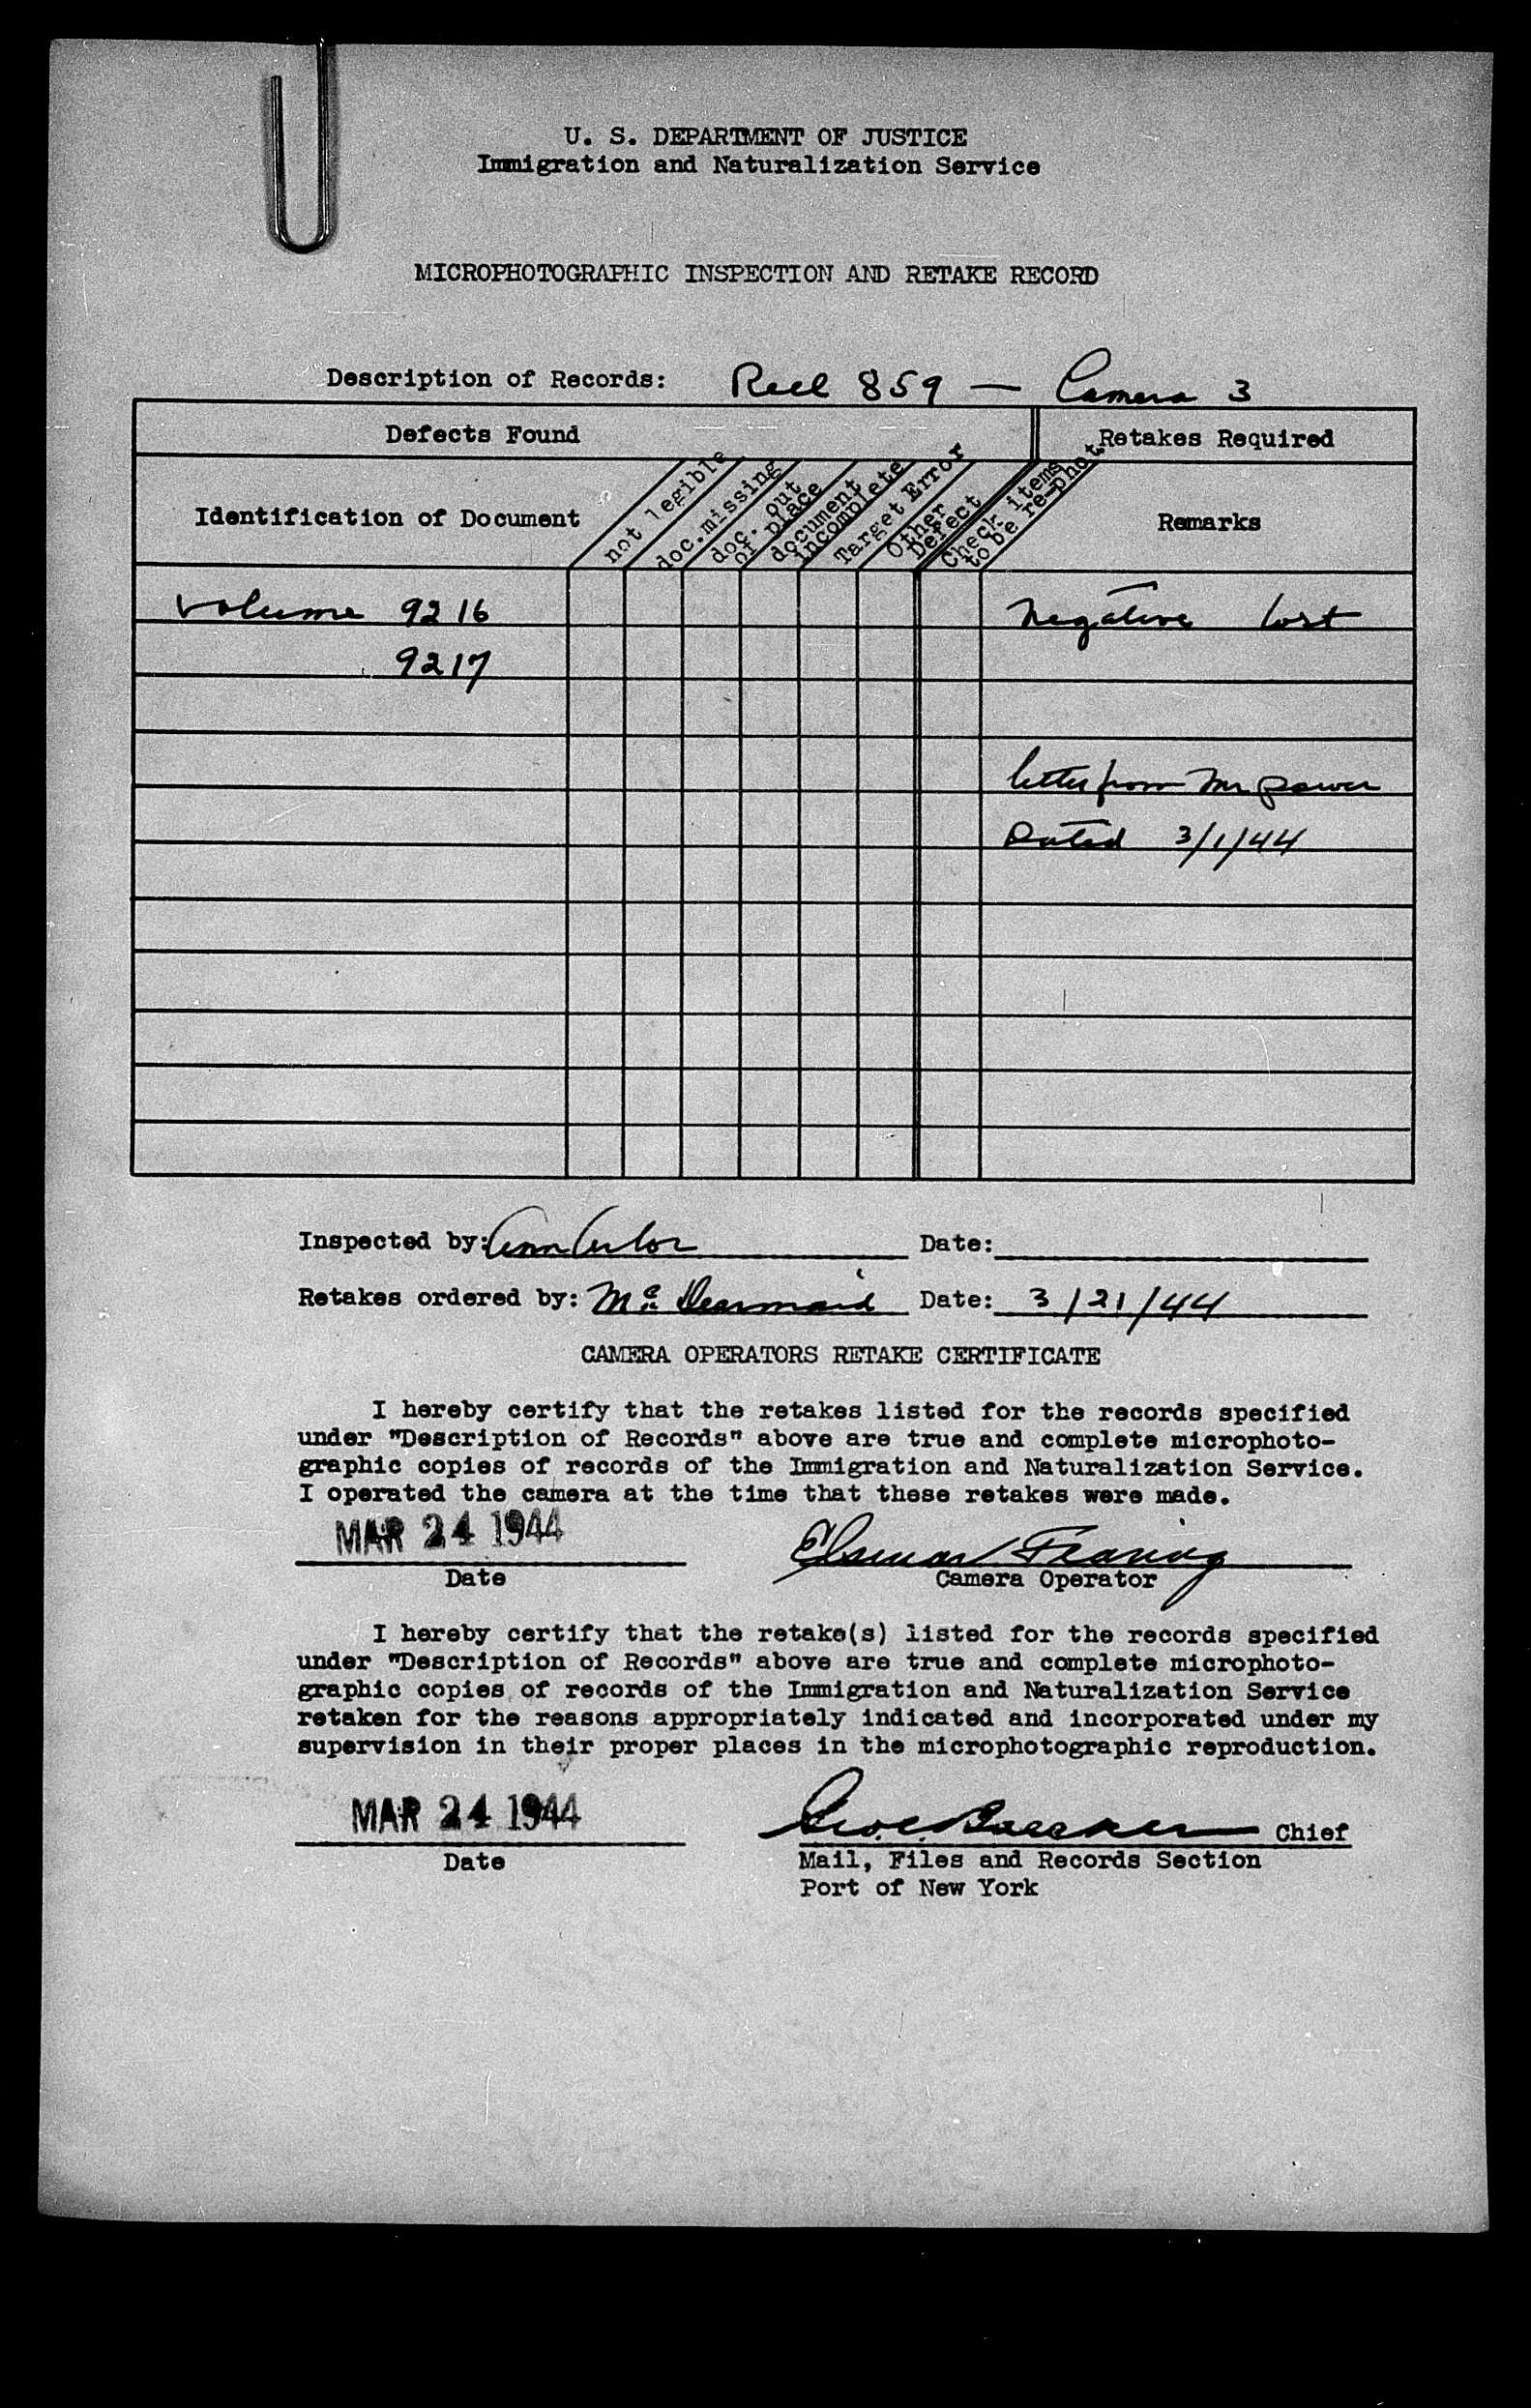 U. S. DEPARTMENT OF JUSTICE
Immigration and Naturalization Service
MICROPHOTOGRAPHIC INSPECTION AND RETAKE RECORD
Description of Records: Reel 859 — Camera 3
Defects Found
Retakes Required
Identification of Document
not legible
doc. missing
doc. out of place
document incomplete
Target Error
Other Defect
Check items to be re-phot.
Remarks
Volume 9216
Negative lost
9217
letter from Mr Power
Dated 3/1/44
Inspected by: Ann Date:
Retakes ordered by: Mc Dearmaid Date: 3/21/44
CAMERA OPERATORS RETAKE CERTIFICATE
I hereby certify that the retakes listed for the records specified
under "Description of Records" above are true and complete microphoto-
graphic copies of records of the Immigration and Naturalization Service.
I operated the camera at the time that these retakes were made.
MAR 24 1944
Date
Camera Operator
I hereby certify that the retake(s) listed for the records specified
under "Description of Records" above are true and complete microphoto-
graphic copies of records of the Immigration and Naturalization Service
retaken for the reasons appropriately indicated and incorporated under my
supervision in their proper places in the microphotographic reproduction.
MAR 24 1944
Chief
Date
Mail, Files and Records Section
Port of New York